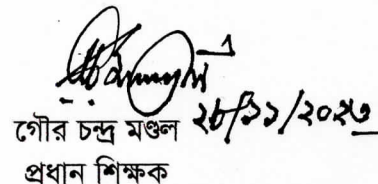 গৌর চন্দ্র মণ্ডল ২৮/১১/২০২৩
প্রধান শিক্ষক